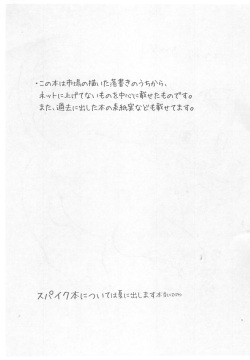 ・この本は市場の描いた落書きのうちから、
ネットに上げてないものを中心に載せたものです。
また、過去に出した本の表紙案なども載せてます。
スパイク本については夏に出します